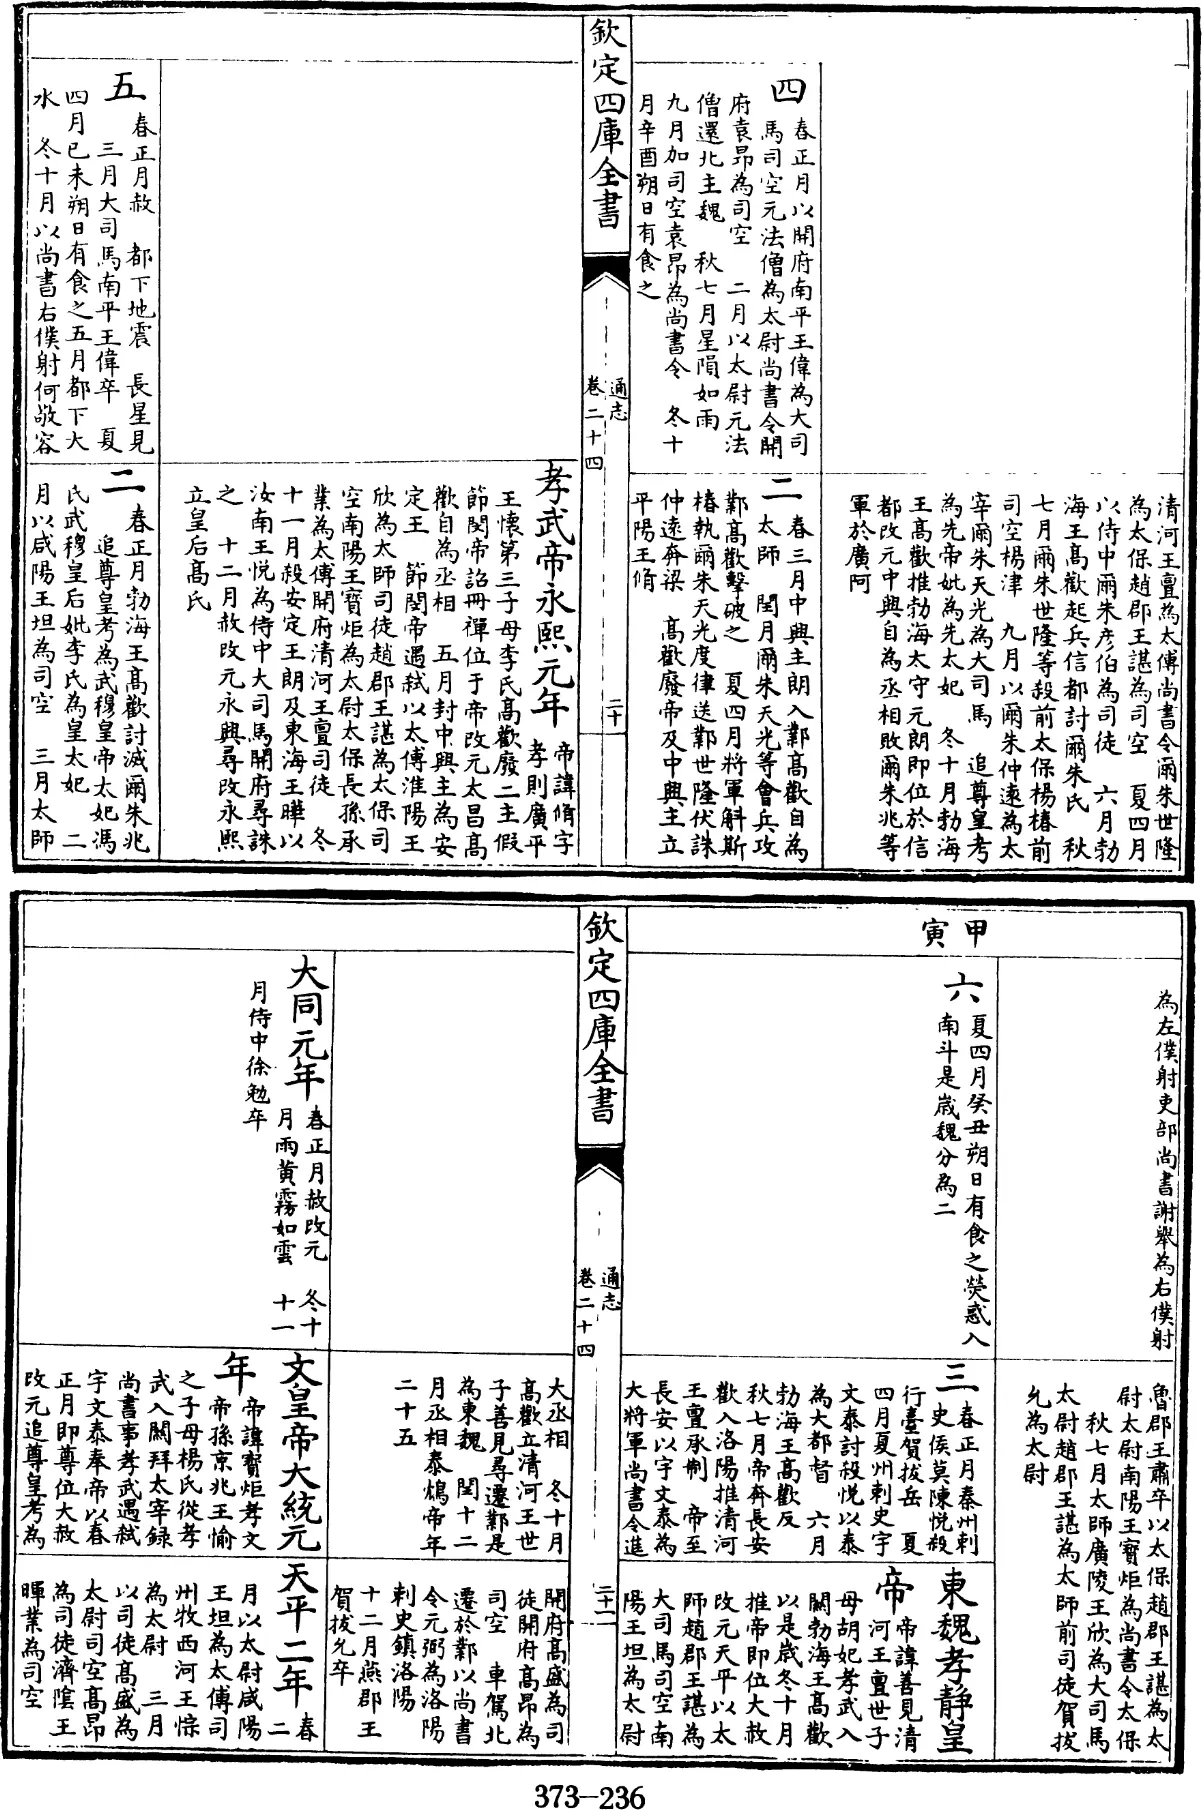 清河王亶為太傅尚書令爾朱世隆
為太保趙郡王諶為司空　夏四月
以侍中爾朱彦伯為司徒　六月勃
海王高歡起兵信都討爾朱氏　秋
七月爾朱世隆等殺前太保楊椿前
司空楊津　九月以爾朱仲逺為太
宰爾朱天光為大司馬　追尊皇考
為先帝妣為先太妃　冬十月勃海
王高歡推勃海太守元朗即位於信
都改元中興自為丞相敗爾朱兆等
軍於廣阿
四　春正月以開府南平王偉為大司
馬司空元法僧為太尉尚書令開
府袁昂為司空　二月以太尉元法
僧還北主魏　秋七月星隕如雨
九月加司空袁昂為尚書令　冬十
月辛酉朔日有食之
二　春三月中興主朗入鄴高歡自為
太師　閏月爾朱天光等會兵攻
鄴高歡擊破之　夏四月將軍斛斯
椿執爾朱天光度律送鄴世隆伏誅
仲逺奔梁　高歡廢帝及中興主立
平陽王脩
欽定四庫全書
通志
卷二十四
二十
孝武帝永熙元年　帝諱脩字
孝則廣平
王懷第三子母李氏高歡廢二主假
節閔帝詔冊禪位于帝改元太昌高
歡自為丞相　五月封中興主為安
定王　節閔帝遇弑以太傅淮陽王
欣為太師司徒趙郡王諶為太保司
空南陽王寶炬為太尉太保長孫承
業為太傅開府清河王亶司徒　冬
十一月殺安定王朗及東海王曄以
汝南王悅為侍中大司馬開府尋誅
之　十二月赦改元永興尋改永熙
立皇后高氏
五　春正月赦　都下地震　長星見
三月大司馬南平王偉卒　夏
四月己未朔日有食之五月都下大
水　冬十月以尚書右僕射何敬容
二　春正月勃海王高歡討滅爾朱兆
追尊皇考為武穆皇帝太妃馮
氏武穆皇后妣李氏為皇太妃　二
月以咸陽王坦為司空　三月太師
為左僕射吏部尚書謝舉為右僕射
魯郡王肅卒以太保趙郡王諶為太
尉太尉南陽王寶炬為尚書令太保
秋七月太師廣陵王欣為大司馬
太尉趙郡王諶為太師前司徒賀拔
允為太尉
甲寅
六　夏四月癸丑朔日有食之熒惑入
南斗是歲魏分為二
三　春正月秦州刺
史侯莫陳悅殺
行臺賀拔岳　夏
四月夏州刺史宇
文泰討殺悅以泰
為大都督　六月
勃海王高歡反
秋七月帝奔長安
歡入洛陽推清河
王亶承制　帝至
長安以宇文泰為
大將軍尚書令進
東魏孝靜皇
帝　帝諱善見清
河王亶世子
母胡妃孝武入
關勃海王高歡
以是歲冬十月
推帝即位大赦
改元天平以太
師趙郡王諶為
大司馬司空南
陽王坦為太尉
欽定四庫全書
通志
卷二十四
二十一
大丞相　冬十月
高歡立清河王世
子善見尋遷鄴是
為東魏　閏十二
月丞相泰鴆帝年
二十五
開府高盛為司
徒開府高昂為
司空　車駕北
遷於鄴以尚書
令元弼為洛陽
刺史鎮洛陽
十二月燕郡王
賀拔允卒
大同元年　春正月赦改元　冬十
月雨黄霧如雲　十一
月侍中徐勉卒
文皇帝大統元
年　帝諱寶炬孝文
帝孫京兆王愉
之子母楊氏從孝
武入關拜太宰録
尚書事孝武遇弑
宇文泰奉帝以春
正月即尊位大赦
改元追尊皇考為
天平二年　春
二
月以太尉咸陽
王坦為太傅司
州牧西河王悰
為太尉　三月
以司徒高盛為
太尉司空高昂
為司徒濟隂王
暉業為司空
373—236